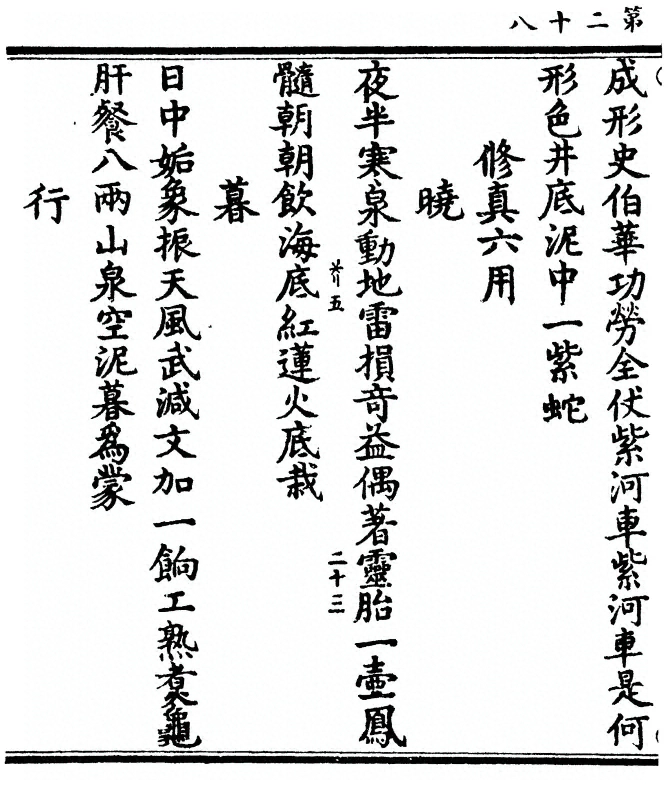 第二十八
成形史伯華功勞全伏紫河車紫河車是何
形色井底泥中一紫蛇
修真六用
曉
夜半寒泉動地雷損奇益偶著靈胎一壺鳳
卷五
二十三
髓朝朝飲海底紅蓮火底栽
暮
日中姤象振天風武減文加一餉工熟煮龜
肝餐八兩山泉空泥暮為蒙
行